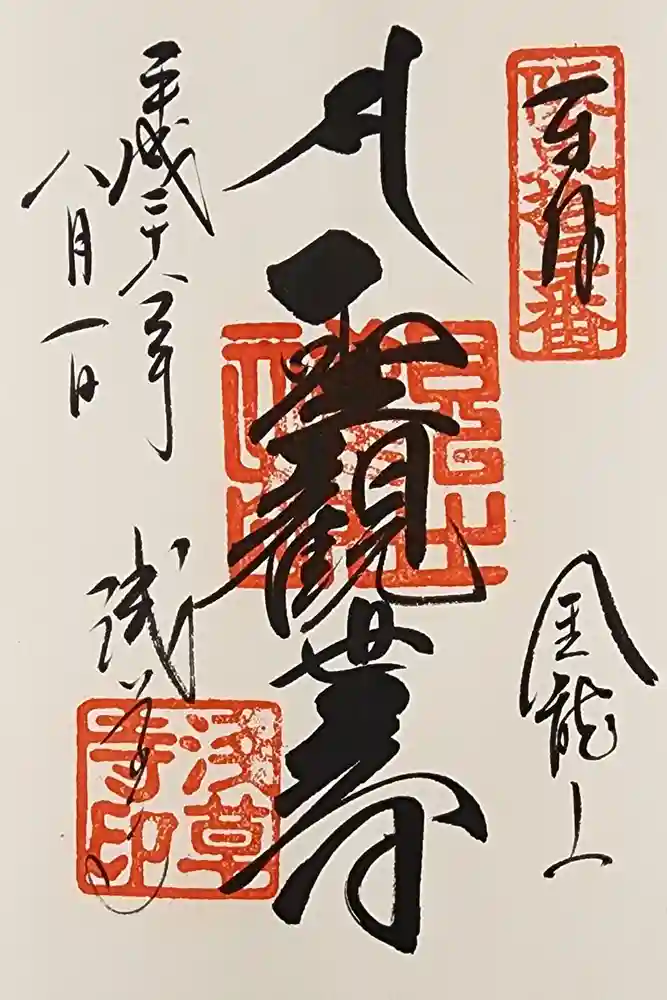 奉拝
阪東拾三番
金龍山
聖観世音
浅草寺
浅草寺印
平成二十八年
八月一日